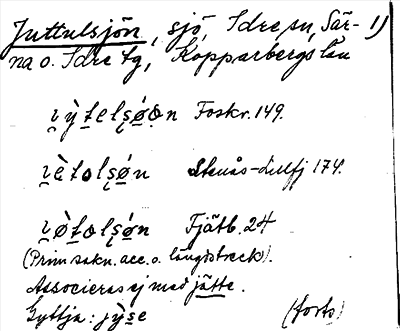 Juttulsjön, sjö, Idre sn, Sär- 1)
na o. Idre tg, Kopparbergs län
ɩỳtelsøon Foskr. 149.
ɩètolsøn Stenås-Lillfj 174.
ɩøtolsøn Fjätb. 24
(Prim sakn. acc. o. längdstreck).
Associeras ej med jätte.
Gyttja: jỳse (forts)